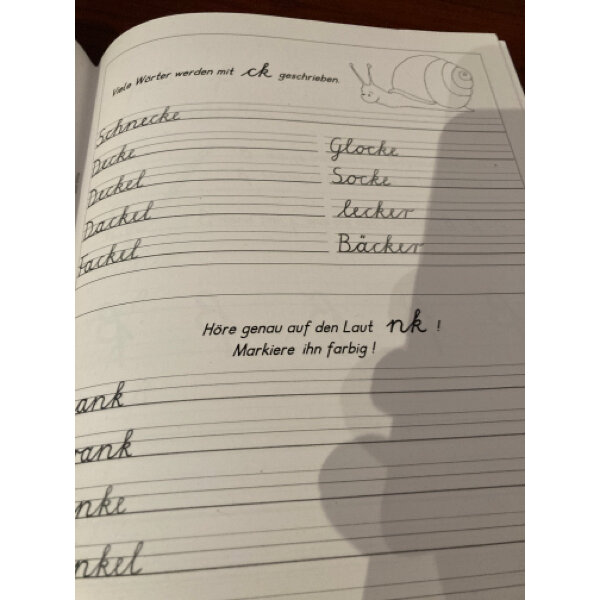 Viele Wörter werden mit ck geschrieben.
Schnecke
Decke Glocke
Deckel Socke
Dackel lecker
Fackel Bäcker
Höre genau auf den Laut nk !
Markiere ihn farbig !
ank
ank
nke
nkel